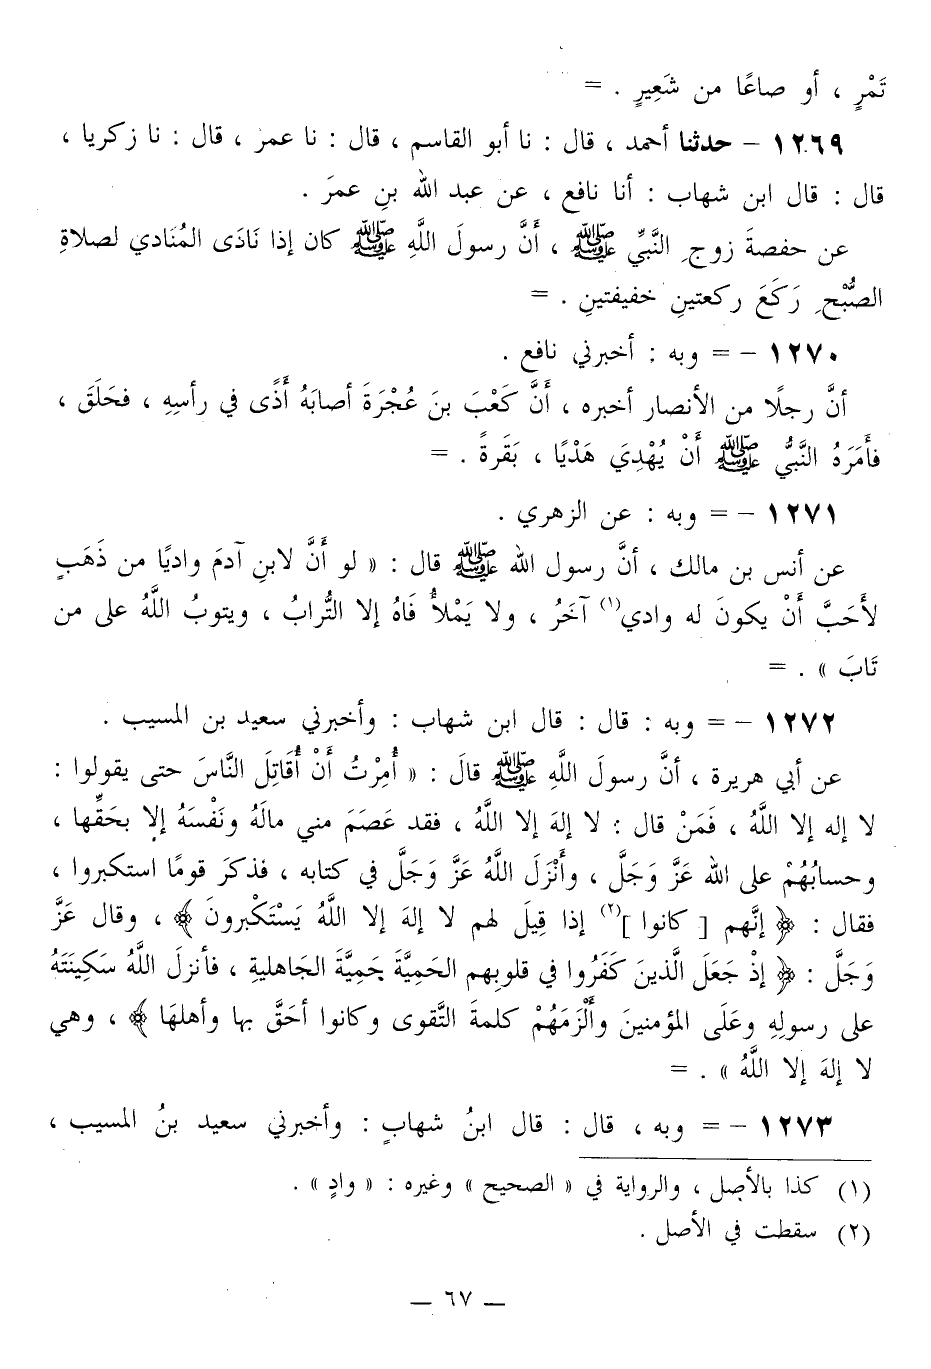 تَمْرٍ ، أو صاعًا من شَعِيرٍ . =
١٢٦٩ – حدثنا أحمد ، قال : نا أبو القاسم ، قال : نا عمر ، قال : نا زكريا ،
قال : قال ابن شهاب : أنا نافع ، عن عبد الله بنِ عمرَ .
عن حفصةَ زوجِ النَّبيِّ ﷺ ، أَنَّ رسولَ اللَّهِ ﷺ كان إذا نَادَى المُنَادي لصلاةِ
الصُّبْحِ رَكَعَ ركعتينِ خفيفتينِ . =
١٢٧٠ – = وبه : أخبرني نافع .
أنَّ رجلًا من الأنصار أخبره ، أَنَّ كَعْبَ بنَ عُجْرَةَ أصابَهُ أَذًى في رأسِهِ ، فحَلَقَ ،
فأَمَرَهُ النَّبيُّ ﷺ أَنْ يُهْدِيَ هَدْيًا ، بَقَرةً . =
١٢٧١ – = وبه : عن الزهري .
عن أنس بن مالك ، أنَّ رسول الله ﷺ قال : « لو أَنَّ لابنِ آدمَ واديًا من ذَهَبٍ
لأَحَبَّ أَنْ يكونَ له وادي(١) آخَرُ ، ولا يَمْلأُ فَاهُ إلا التُّرابُ ، ويتوبُ اللَّهُ على من
تَابَ » . =
١٢٧٢ – = وبه : قال : قال ابن شهاب : وأخبرني سعيد بن المسيب .
عن أبي هريرة ، أنَّ رسولَ اللَّهِ ﷺ قالَ : « أُمِرْتُ أَنْ أُقَاتِلَ النَّاسَ حتى يقولوا :
لا إله إلا اللَّهُ ، فَمَنْ قال : لا إلهَ إلا اللَّهُ ، فقد عَصَمَ مني مالَهُ ونَفْسَهُ إلا بحَقِّها ،
وحسابُهُمْ على الله عَزَّ وَجَلَّ ، وأَنْزَلَ اللَّهُ عَزَّ وَجَلَّ في كتابه ، فذكرَ قومًا استكبروا ،
فقال : ﴿ إنَّهم [ كانوا ](٢) إذا قِيلَ لهم لا إلهَ إلا اللَّهُ يَسْتَكْبِرونَ ﴾ ، وقال عَزَّ
وَجَلَّ : ﴿ إذْ جَعَلَ الَّذينَ كَفَرُوا في قلوبهم الحَمِيَّةَ حَمِيَّةَ الجَاهليةِ ، فأنزلَ اللَّهُ سَكِينَتَهُ
على رسولِهِ وعَلَى المؤمنينَ وأَلْزَمَهُمْ كلمةَ التَّقوى وكانوا أحَقَّ بها وأهلهَا ﴾ ، وهي
لا إلهَ إلا اللَّهُ » . =
١٢٧٣ – = وبه ، قال : قال ابنُ شهابٍ : وأخبرني سعيد بنُ المسيب ،
(١) كذا بالأصل ، والرواية في « الصحيح » وغيره : « وادٍ » .
(٢) سقطت في الأصل .
— ٦٧ —